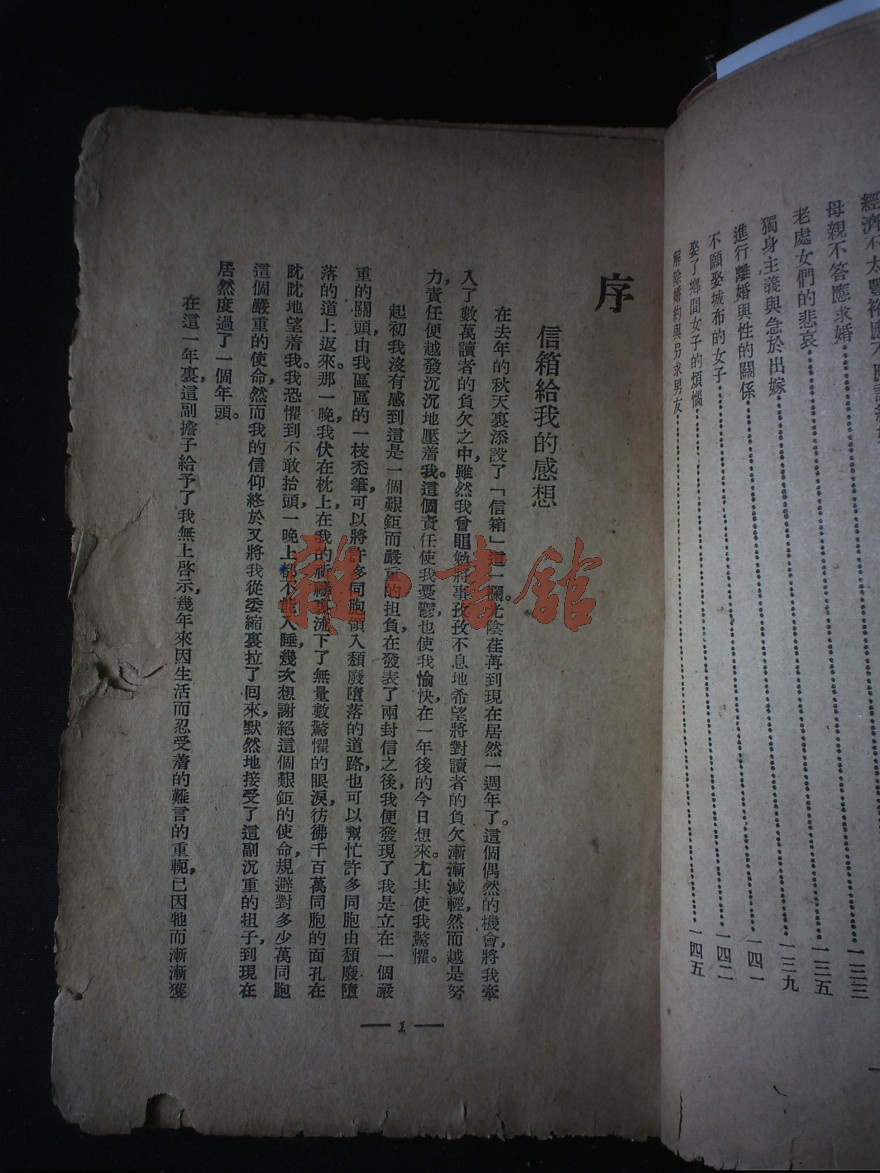 母親不答應求婚……一三三
老處女們的悲哀……一三五
獨身主義與急於出嫁……一三九
進行離婚與性的關係……一四一
不願娶城布的女子……一四二
娶了鄉間女子的煩惱
解除婚約與另求男友……一四五
序
信箱給我的感想
在去年的秋天裏添設了「信箱」這一欄光陰荏苒到現在居然一週年了。這個偶然的機會將我牽
入了數萬讀者的負欠之中，雖然我曾黽勉將事孜孜不息地希望將對讀者的負欠漸漸減輕，然而越是努
力，責任便越發沉沉地壓着我。這個責任使我憂鬱，也使我愉快，在一年後的今日想來。尤其使我驚懼。
起初我沒有感到這是一個艱鉅而嚴重的担負，在發表了兩封信之後，我便發現了我是立在一個嚴
重的關頭，由我區區的一枝禿筆，可以將許多同胞領入頹廢墮落的道路，也可以幫忙許多同胞由頹廢墮
落的道上返來。那一晚，我伏在枕上在我的祈禱裏流下了無量數驚懼的眼淚，彷彿千百萬同胞的面孔在
眈眈地望着我。我恐懼到不敢抬頭，一晚上都不能入睡，幾次想謝絕這個艱鉅的使命，規避對多少萬同胞
這個嚴重的使命，然而我的信仰終於又將我從委縮裏拉了回來，默然地接受了這副沉重的担子，到現在
居然度過了一個年頭。
在這一年裏，這副擔子給予了我無上啓示，幾年來因生活而忍受着的難言的重軛，已因牠而漸漸獲
— 1 —
雜·書館